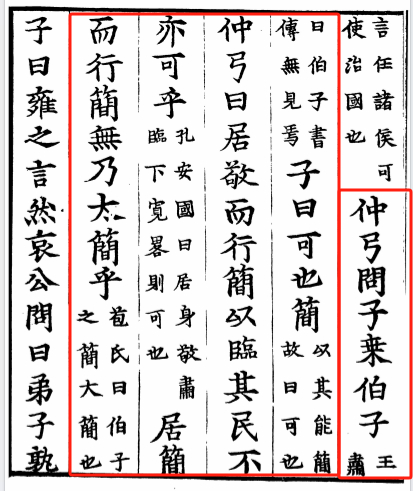 言任諸侯可使治國也仲弓問子桒伯子王肅
曰伯子書傳無見焉子曰可也簡以其能簡故曰可也
仲弓曰居敬而行簡以臨其民不
亦可乎孔安國曰居身敬肅臨下寬畧則可也居簡
而行簡無乃太簡乎苞氏曰伯子之簡大簡也
子曰雍之言然哀公問曰弟子孰